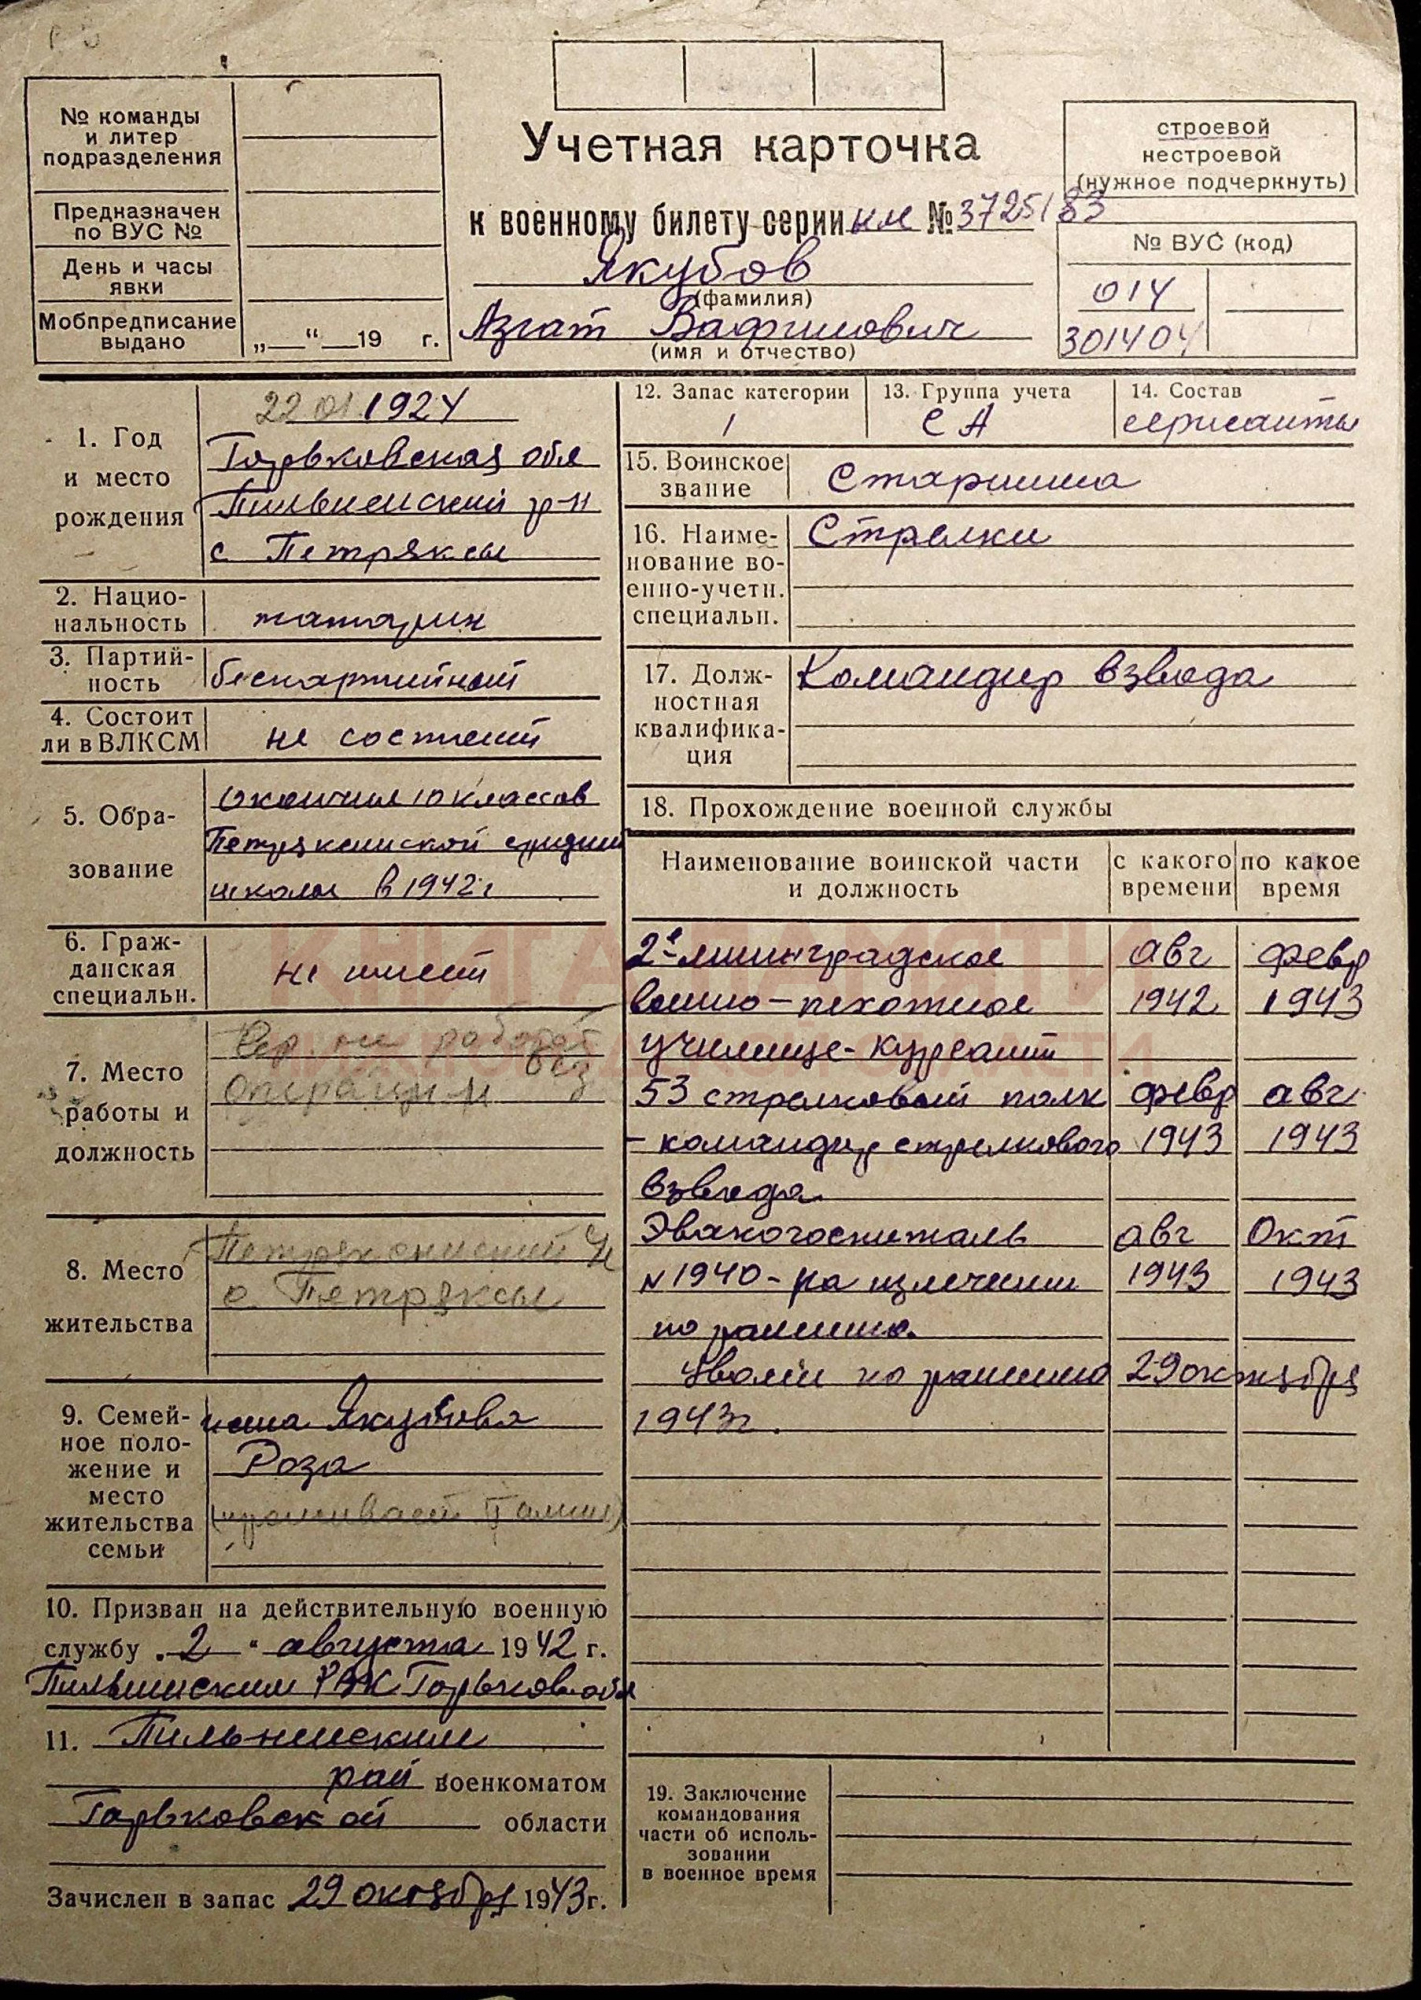 № команды
и литер
подразделения
Предназначен
по ВУС №
День и часы
явки
Мобпредписание
выдано
„ “ 19 г.
Учетная карточка
к военному билету серии нл № 3725183
Якубов
(фамилия)
Азгат
(имя и отчество)
строевой
нестроевой
(нужное подчеркнуть)
№ ВУС (код)
014
301404
1. Год
и место
рождения
22 01 1924
Горьковская обл
Пильненский р-н
с Петряксы
2. Нацио-
нальность
татарин
3. Партий-
ность
беспартийный
4. Состоит
ли в ВЛКСМ
не состоит
5. Обра-
зование
окончил 10 классов
Петряксинской средней
школы в 1942 г
6. Граж-
данская
специальн.
не имеет
7. Место
работы и
должность
не работает
8. Место
жительства
с. Петряксы
9. Семей-
ное поло-
жение и
место
жительства
семьи
жена Якубова
Роза
(проживает
10. Призван на действительную военную
службу „2“ августа 1942 г.
Пильнинским РВК Горьковск обл
11. Пильненским
рай военкоматом
Горьковской области
Зачислен в запас 29 октября 1943 г.
12. Запас категории
1
13. Группа учета
СА
14. Состав
сержанты
15. Воинское
звание
Старшина
16. Наиме-
нование во-
енно-учетн.
специальн.
Стрелки
17. Долж-
ностная
квалифика-
ция
Командир взвода
18. Прохождение военной службы
Наименование воинской части
и должность
с какого
времени
по какое
время
2е ленинградское авг февр
военно-пехотное 1942 1943
училище - курсант
53 стрелковый полк февр авг
- командир стрелкового 1943 1943
взвода
Эвакогоспиталь авг окт
№ 1940 - на излечении 1943 1943
по ранению.
Уволен по ранению 29 октября
1943 г.
19. Заключение
командования
части об исполь-
зовании
в военное время
КНИГА ПАМЯТИ
НИЖЕГОРОДСКОЙ ОБЛАСТИ